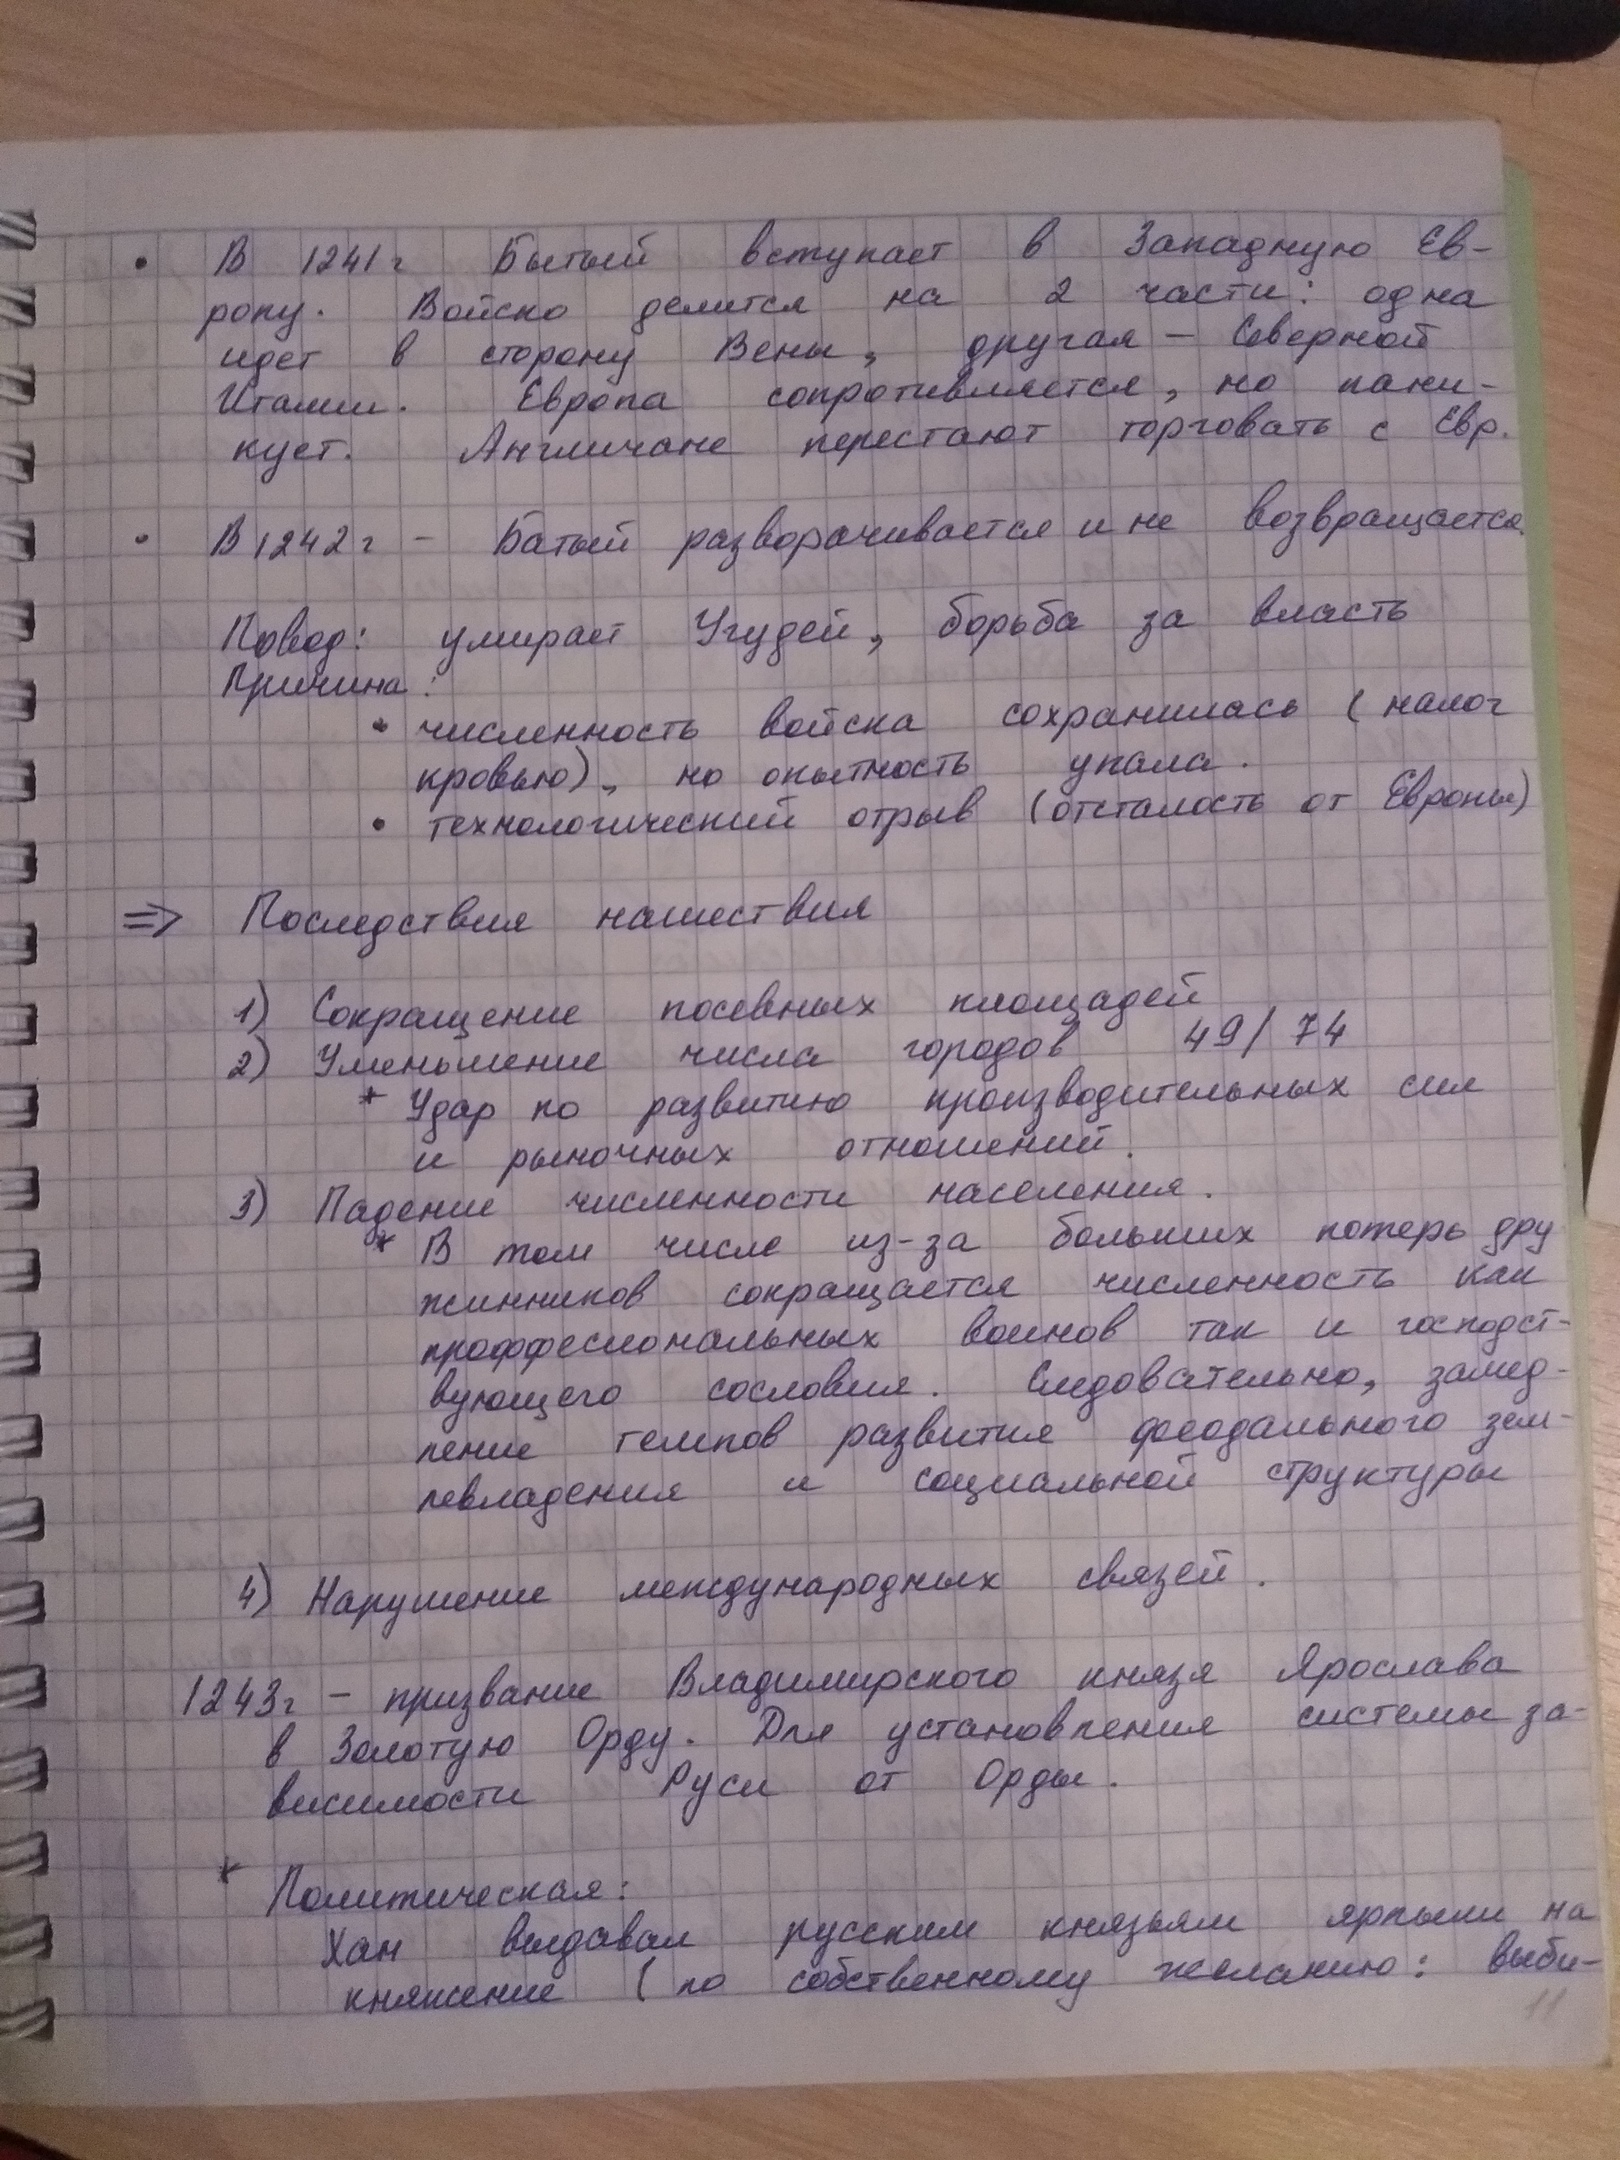 • В 1241г Бытый вступает в Западную Ев-
ропу. Войско делится на 2 части: одна
идет в сторону Вены, другая – Северной
Италии. Европа сопротивляется, но пани-
кует. Англичане перестают торговать с Евр.
• В 1242г – Батый разворачивается и не возвращается.
Повод: умирает Угудей, борьба за власть
Причина:
• численность войска сохранилась (налог
кровью), но опытность упала.
• технологический отрыв (отсталость от Европы)
=> Последствия нашествия
1) Сокращение посевных площадей
2) Уменьшение числа городов 49/74
* Удар по развитию производительных сил
и рыночных отношений.
3) Падение численности населения.
* В том числе из-за больших потерь дру
жинников сокращается численность как
проффесиональных воинов так и господст-
вующего сословия. Следовательно, замед-
ление темпов развития феодального зем-
левладения и социальной структуры
4) Нарушение международных связей.
1243г – призвание Владимирского князя Ярослава
в Золотую Орду. Для установления системы за-
висимости Руси от Орды.
* Политическая:
Хан выдавал русским князьям ярлыки на
княжение (по собственному желанию: выби-
11